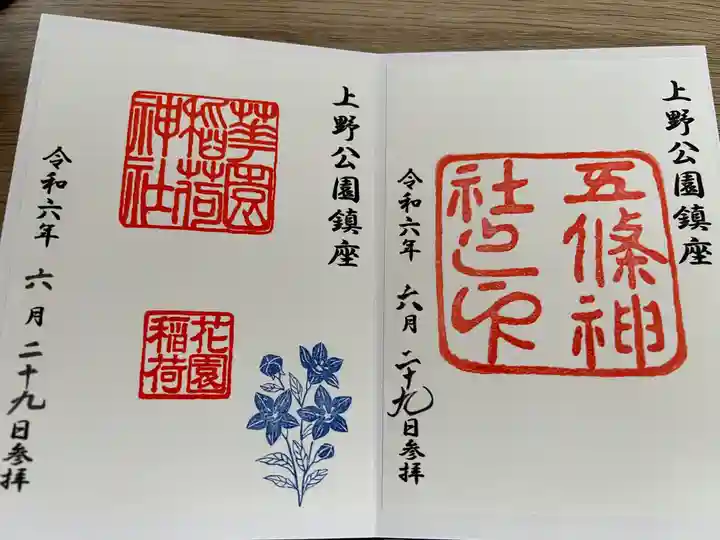 上野公園鎮座
五條神
社之印
令和六年 六月二十九日参拝
上野公園鎮座
華園
稲荷
神社
花園
稲荷
令和六年 六月二十九日参拝